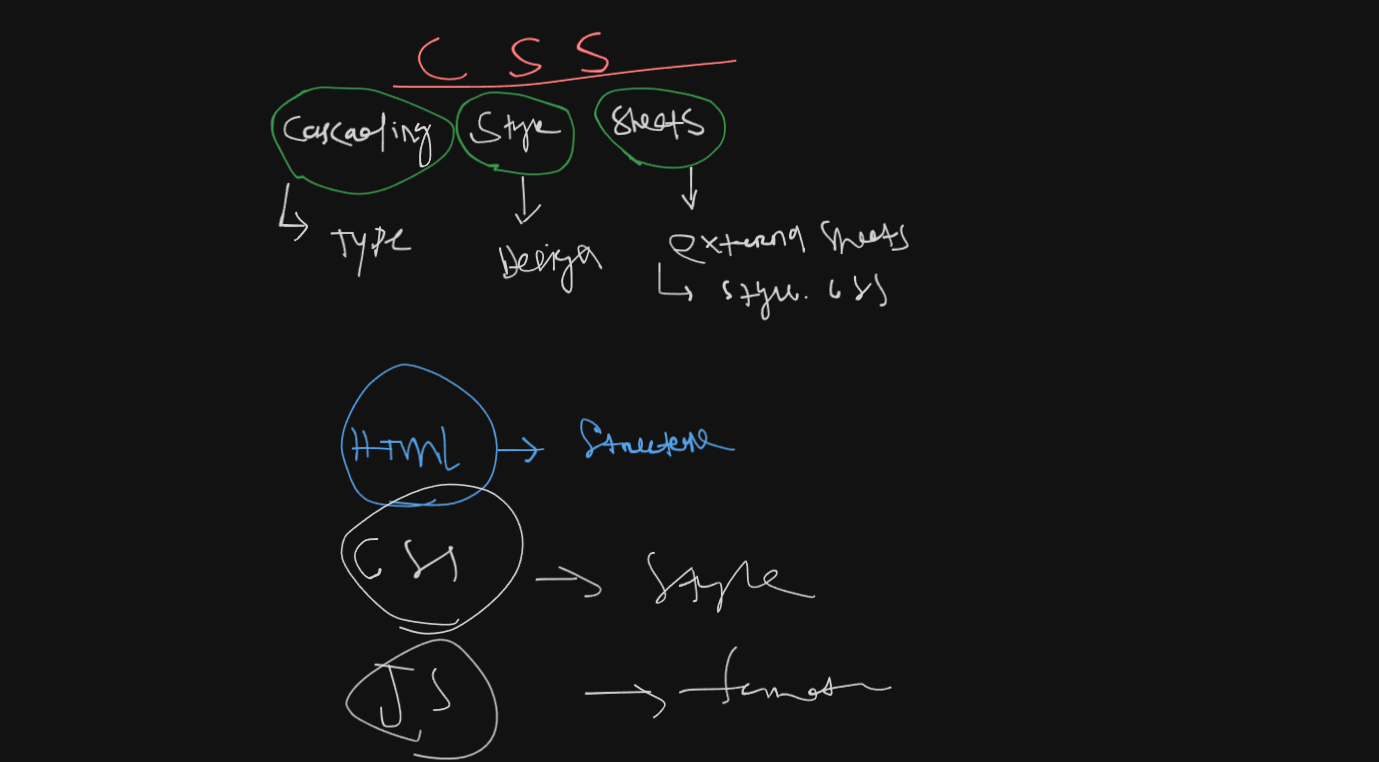 C S S
Cascading Style Sheets
Type Design external Sheets
style.css
HTML → Structure
CSS → Style
JS →